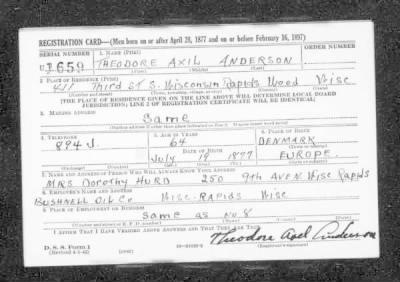 REGISTRATION CARD—(Men born on or after April 28, 1877 and on or before February 16, 1897)
SERIAL NUMBER 1. NAME (Print) ORDER NUMBER
U 1659 THEODORE AXIL ANDERSON
(First) (Middle) (Last)
2. PLACE OF RESIDENCE (Print)
411 Third ST S. Wisconsin Rapids Wood Wisc
(Number and street) (Town, township, village, or city) (County) (State)
[THE PLACE OF RESIDENCE GIVEN ON THE LINE ABOVE WILL DETERMINE LOCAL BOARD
JURISDICTION; LINE 2 OF REGISTRATION CERTIFICATE WILL BE IDENTICAL]
3. MAILING ADDRESS
Same
[Mailing address if other than place indicated on line 2. If same insert word same]
4. TELEPHONE 5. AGE IN YEARS 6. PLACE OF BIRTH
894 J. 64 DENMARK
DATE OF BIRTH
July 19 1877 EUROPE
(Exchange) (Number) (Mo.) (Day) (Yr.) (State or country)
7. NAME AND ADDRESS OF PERSON WHO WILL ALWAYS KNOW YOUR ADDRESS
MRS Dorothy HURD 250 9th AVE N. Wisc Rapids
8. EMPLOYER'S NAME AND ADDRESS
BUSHNELL OIL Co Wisc-Rapids Wisc
9. PLACE OF EMPLOYMENT OR BUSINESS
Same as No 8
(Number and street or R. F. D. number) (Town) (County) (State)
I AFFIRM THAT I HAVE VERIFIED ABOVE ANSWERS AND THAT THEY ARE TRUE.
D. S. S. Form 1
(Revised 4-1-42) (over) Theodore Axel Anderson
(Registrant's signature)